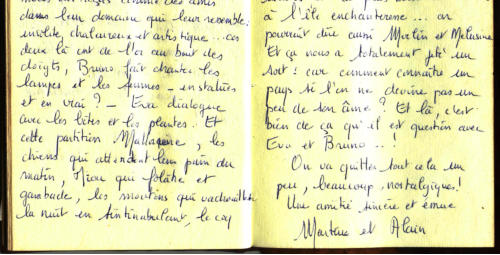 dans leur domaine qui leur ressemble :
insolite, chaleureux et artistique... ces
deux là ont de l'or au bout des
doigts, Bruno fait chanter les
lampes et les femmes - en statues
et en vrai ? - Eva dialogue
avec les bêtes et les plantes. Et
cette partition, les
chiens qui attendent leur pain du
matin, qui folâtre et
gambade, les moutons qui vadrouillent
la nuit en tintinnabulant, le coq
à l'île enchanteresse... on
pourrait dire aussi Merlin et Mélusine
Et ça nous a totalement jeté un
sort : car comment connaître un
pays si l'on ne devine pas un
peu de son âme ? Et là, c'est
bien de ça qu'il est question avec
Eva et Bruno...!
On va quitter tout cela un
peu, beaucoup, nostalgiques !
Une amitié sincère et émue
et Alain